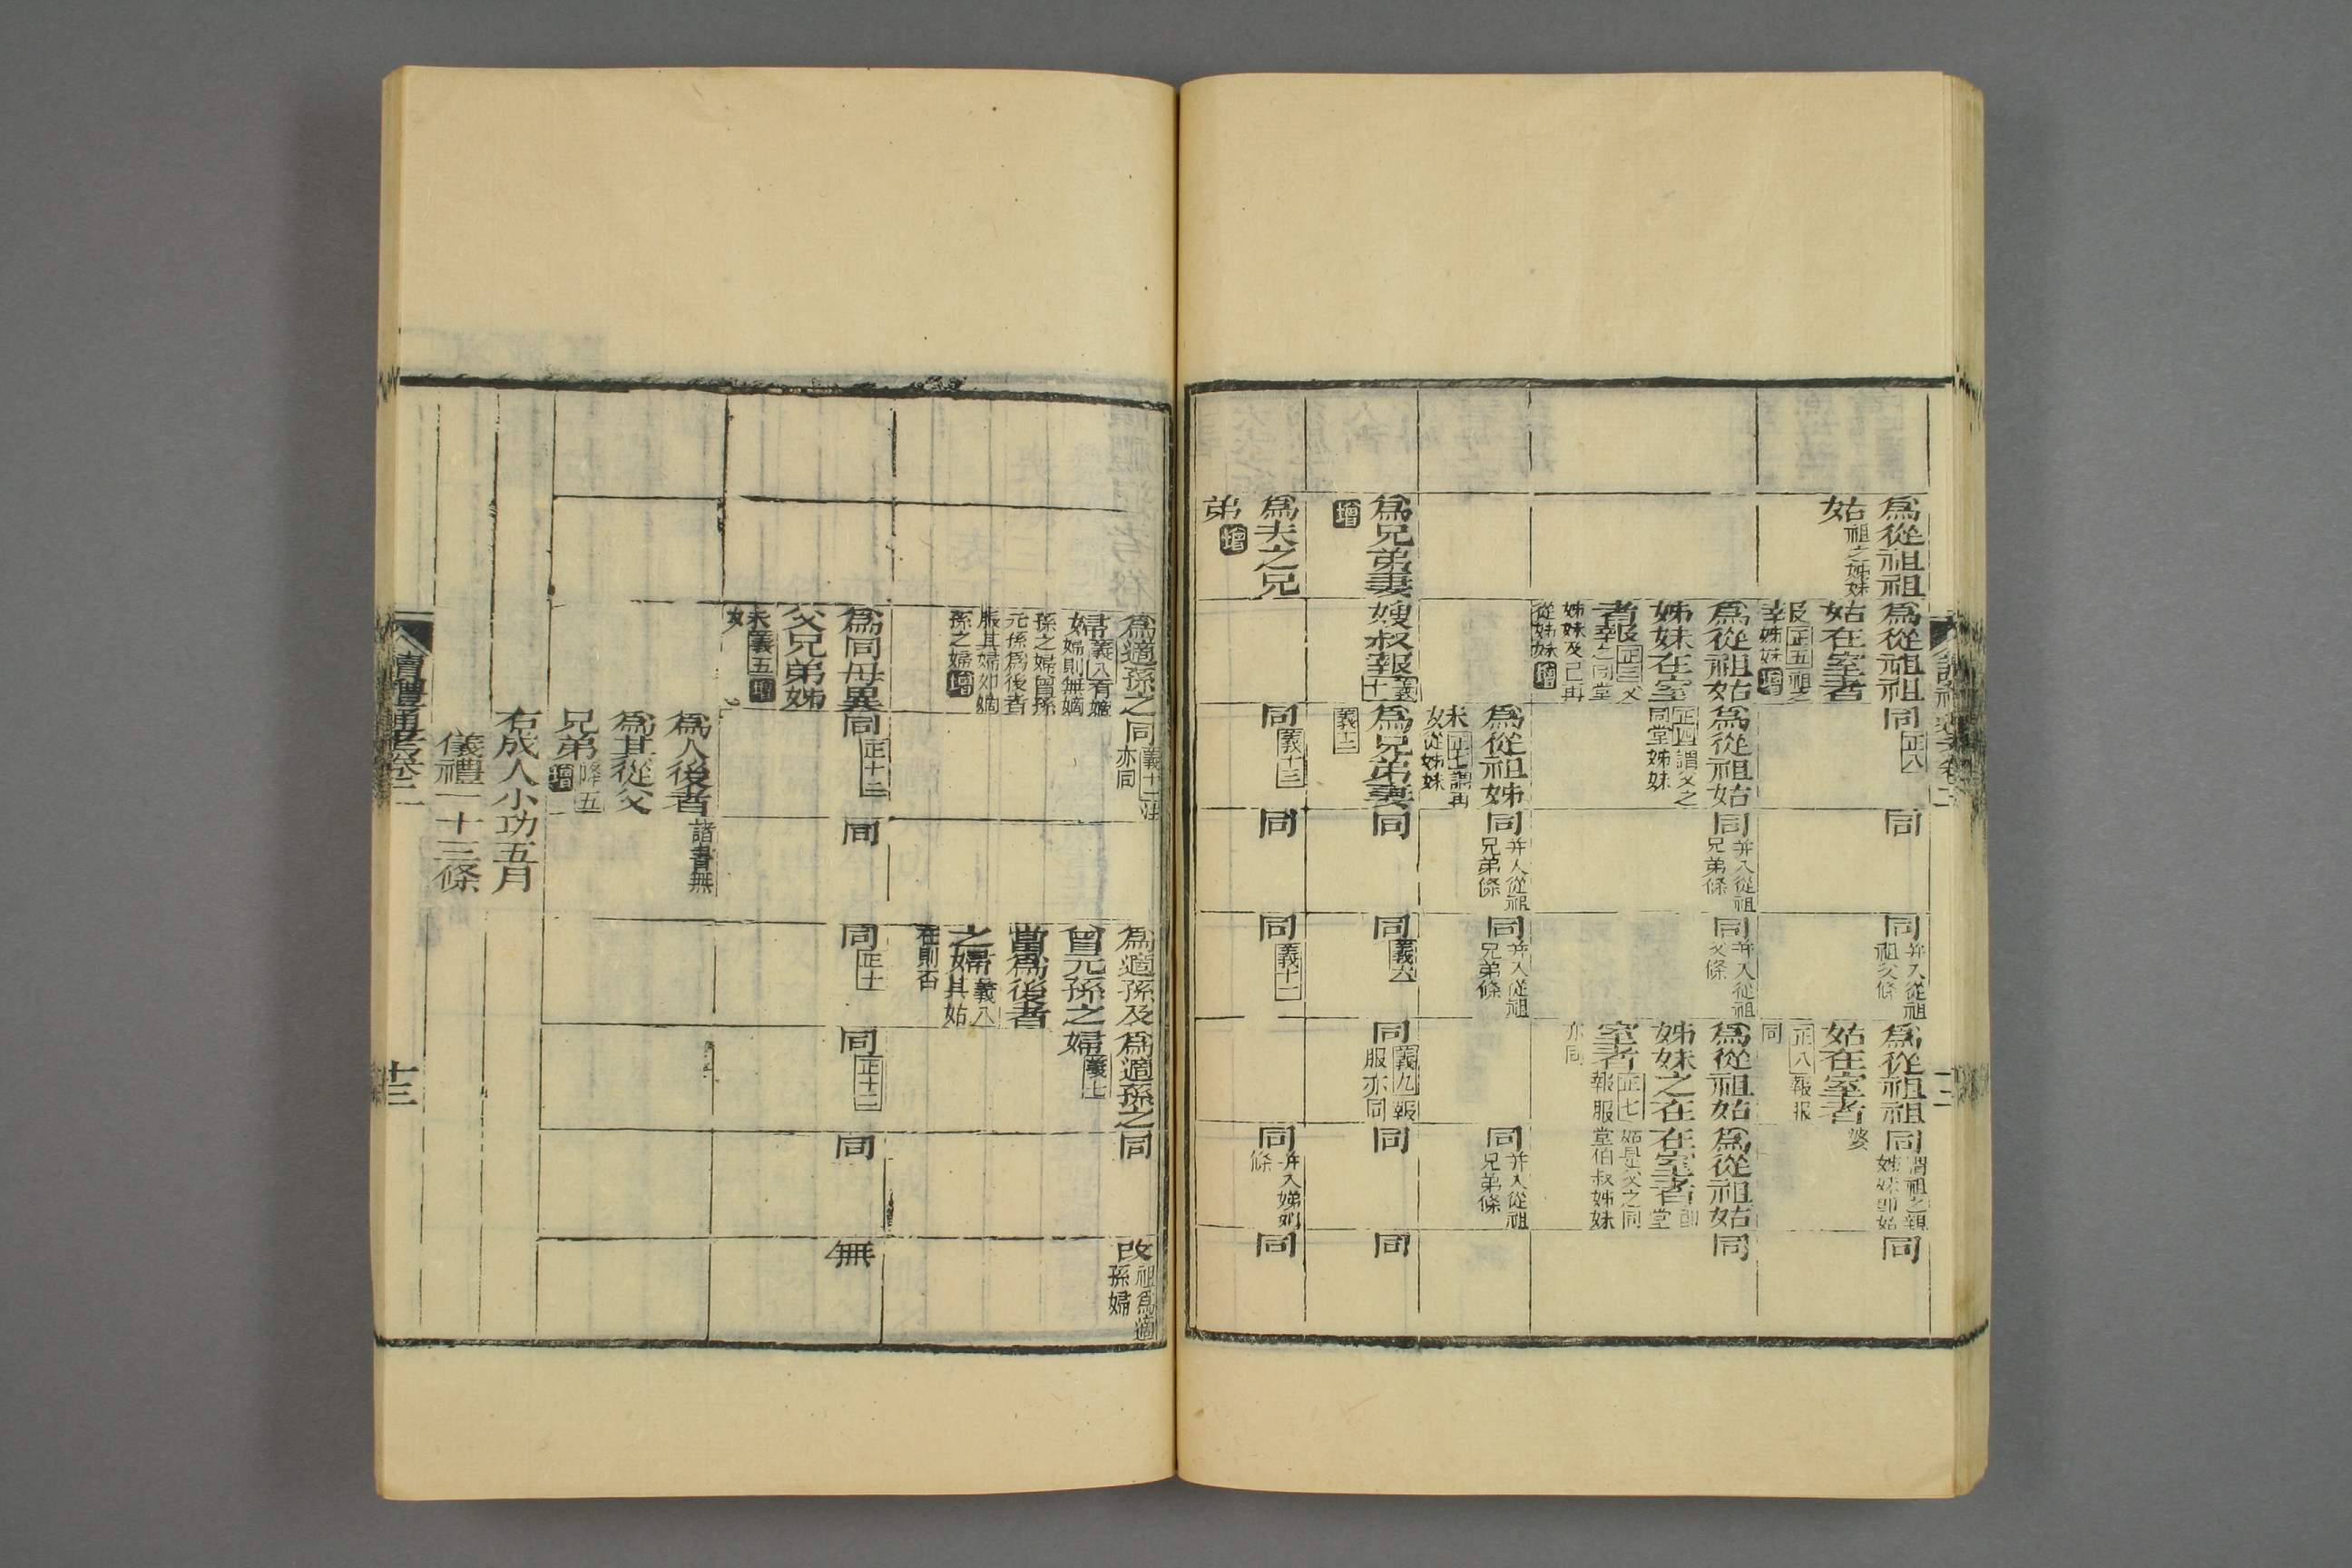 為從祖祖
姑祖之姊妹
為從祖祖
姑在室者
報正五祖之
姊妹增
同正八
同
同并入從祖
祖父條
為從祖祖
姑在室者
正八報服
同
同謂祖之親
姊妹卽姑
婆
同
為從祖姑
姊妹在室
者報正三父
之同堂
姊妹及己再
從姊妹增
為從祖姑
正四謂父之
同堂姊妹
同并入從祖
兄弟條
同并入從祖
父條
為從祖姑
姊妹之在
室者正七
報服
亦同
為從祖姑
在室者卽
堂
姑是父之同
堂伯叔姊妹
同
為從祖姊
妹正七謂再
從姊妹
同并入從祖
兄弟條
同并入從祖
兄弟條
同并入從祖
兄弟條
為兄弟妻
增
嫂叔報義
十
為兄弟妻
義十二
同
同義六
同義九報
服亦同
同
同
為夫之兄
弟增
同義十三
同
同義十一
同并入娣姒
條
同
為適孫之
婦義八有嫡
婦則無嫡
孫之婦曾孫
元孫為後者
服其婦如嫡
孫之婦增
同義十二注
亦同
為適孫及
曾元孫之
當為後者
之婦義八
其姑
在則否
為適孫之
婦義七
同
改祖為適
孫婦
為同母異
父兄弟姊
妹義五增
同正十二
同
同正十
同正十二
同
無
為人後者
為其從父
兄弟降五
增
諸書無
右成人小功五月
儀禮一十三條
讀禮通考卷二
十三